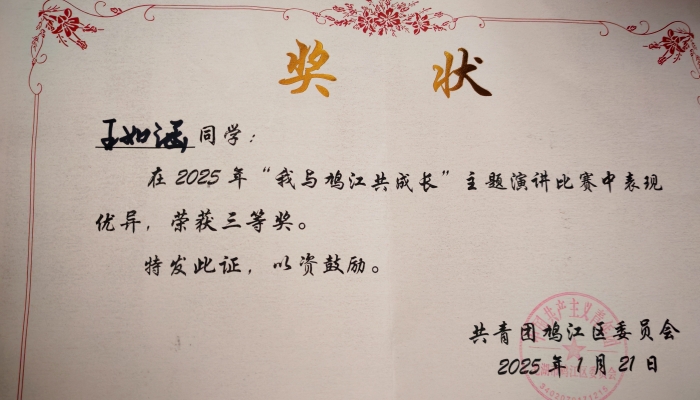 奖状
王如涵同学：
在2025年“我与鸠江共成长”主题演讲比赛中表现
优异，荣获三等奖。
特发此证，以资鼓励。
共青团鸠江区委员会
2025年1月21日